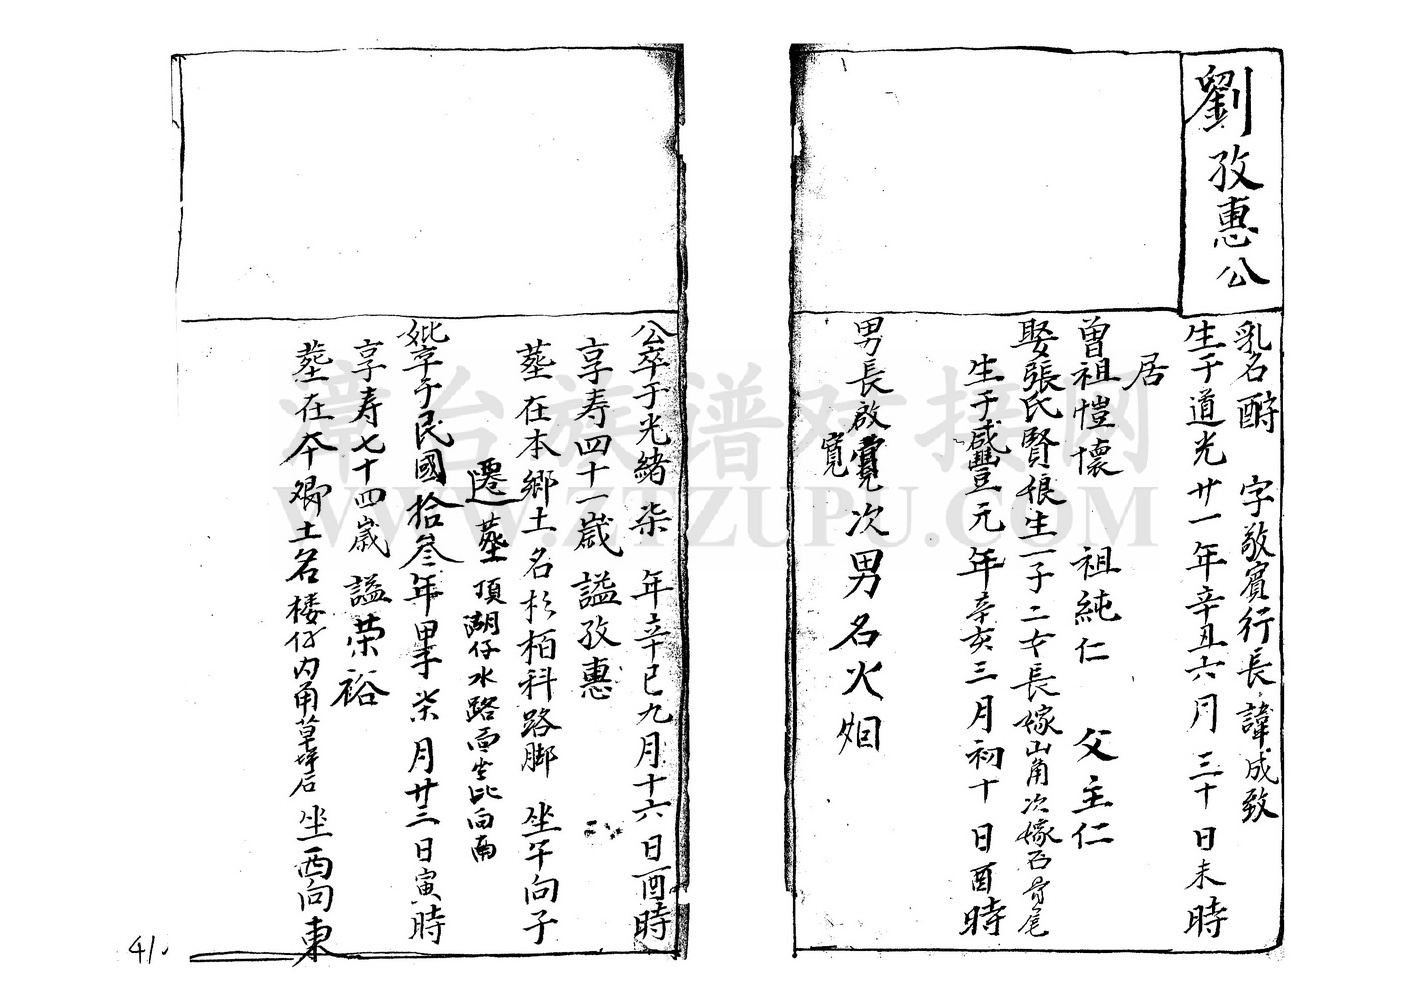 劉孜惠公
乳名酧 字敬賓行長諱成致
生于道光廿一年辛丑六月三十日未時
居
曾祖愷懷 祖純仁 父主仁
娶張氏賢娘生一子二女長嫁山角次嫁石骨尾
生于咸豐元年辛亥三月初十日酉時
男長啟寬次男名火
寬
公卒于光緒柒年辛巳九月十六日酉時
享寿四十一歲謚孜惠
塟在本鄉土名杉栢科路脚 坐午向子
遷塟頂湖仔水路面坐北向南
妣卒于民國拾叁年甲子柒月廿三日寅時
享寿七十四歲謚荣裕
塟在本鄉土名楼仔内角草坪后坐西向東
41.
漳台族谱对接网
WWW.ZTZUPU.COM